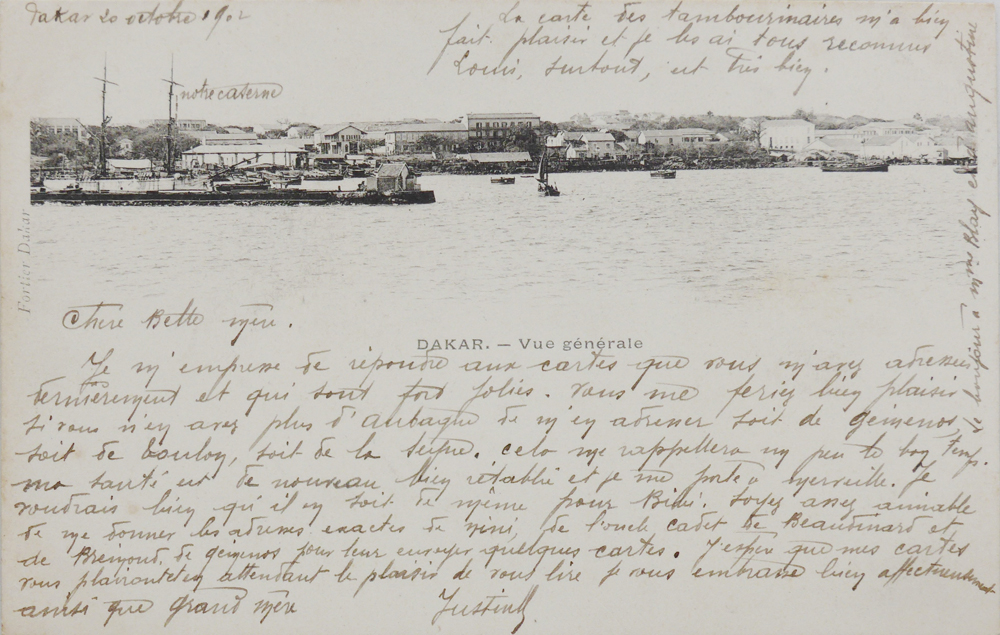 Dakar 20 octobre 1902
La carte des tambourinaires m'a bien
fait plaisir et je les ai tous reconnus
Louis, surtout, est très bien.
notre caserne
Fortier Dakar
Chère Belle mère.
DAKAR. — Vue générale
Je m'empresse de répondre aux cartes que vous m'avez adressées
dernièrement et qui sont fort jolies. Vous me feriez bien plaisir
si vous n'en avez plus d'Aubagne de m'en adresser soit de Gémenos,
soit de Toulon, soit de la Seyne. cela me rappellera un peu le bon temps.
ma santé est de nouveau bien rétablie et je me porte à merveille. Je
voudrais bien qu'il en soit de même pour Bibi. Soyez assez aimable
de me donner les adresses exactes de Mimi, de l'oncle cadet de Beaudinard et
de Brémond de gémenos pour leur envoyer quelques cartes. J'espère que mes cartes
vous plairont et en attendant le plaisir de vous lire je vous embrasse bien affectueusement
ainsi que Grand mère
Justin
Le bonjour à Mme Blay et à augustine